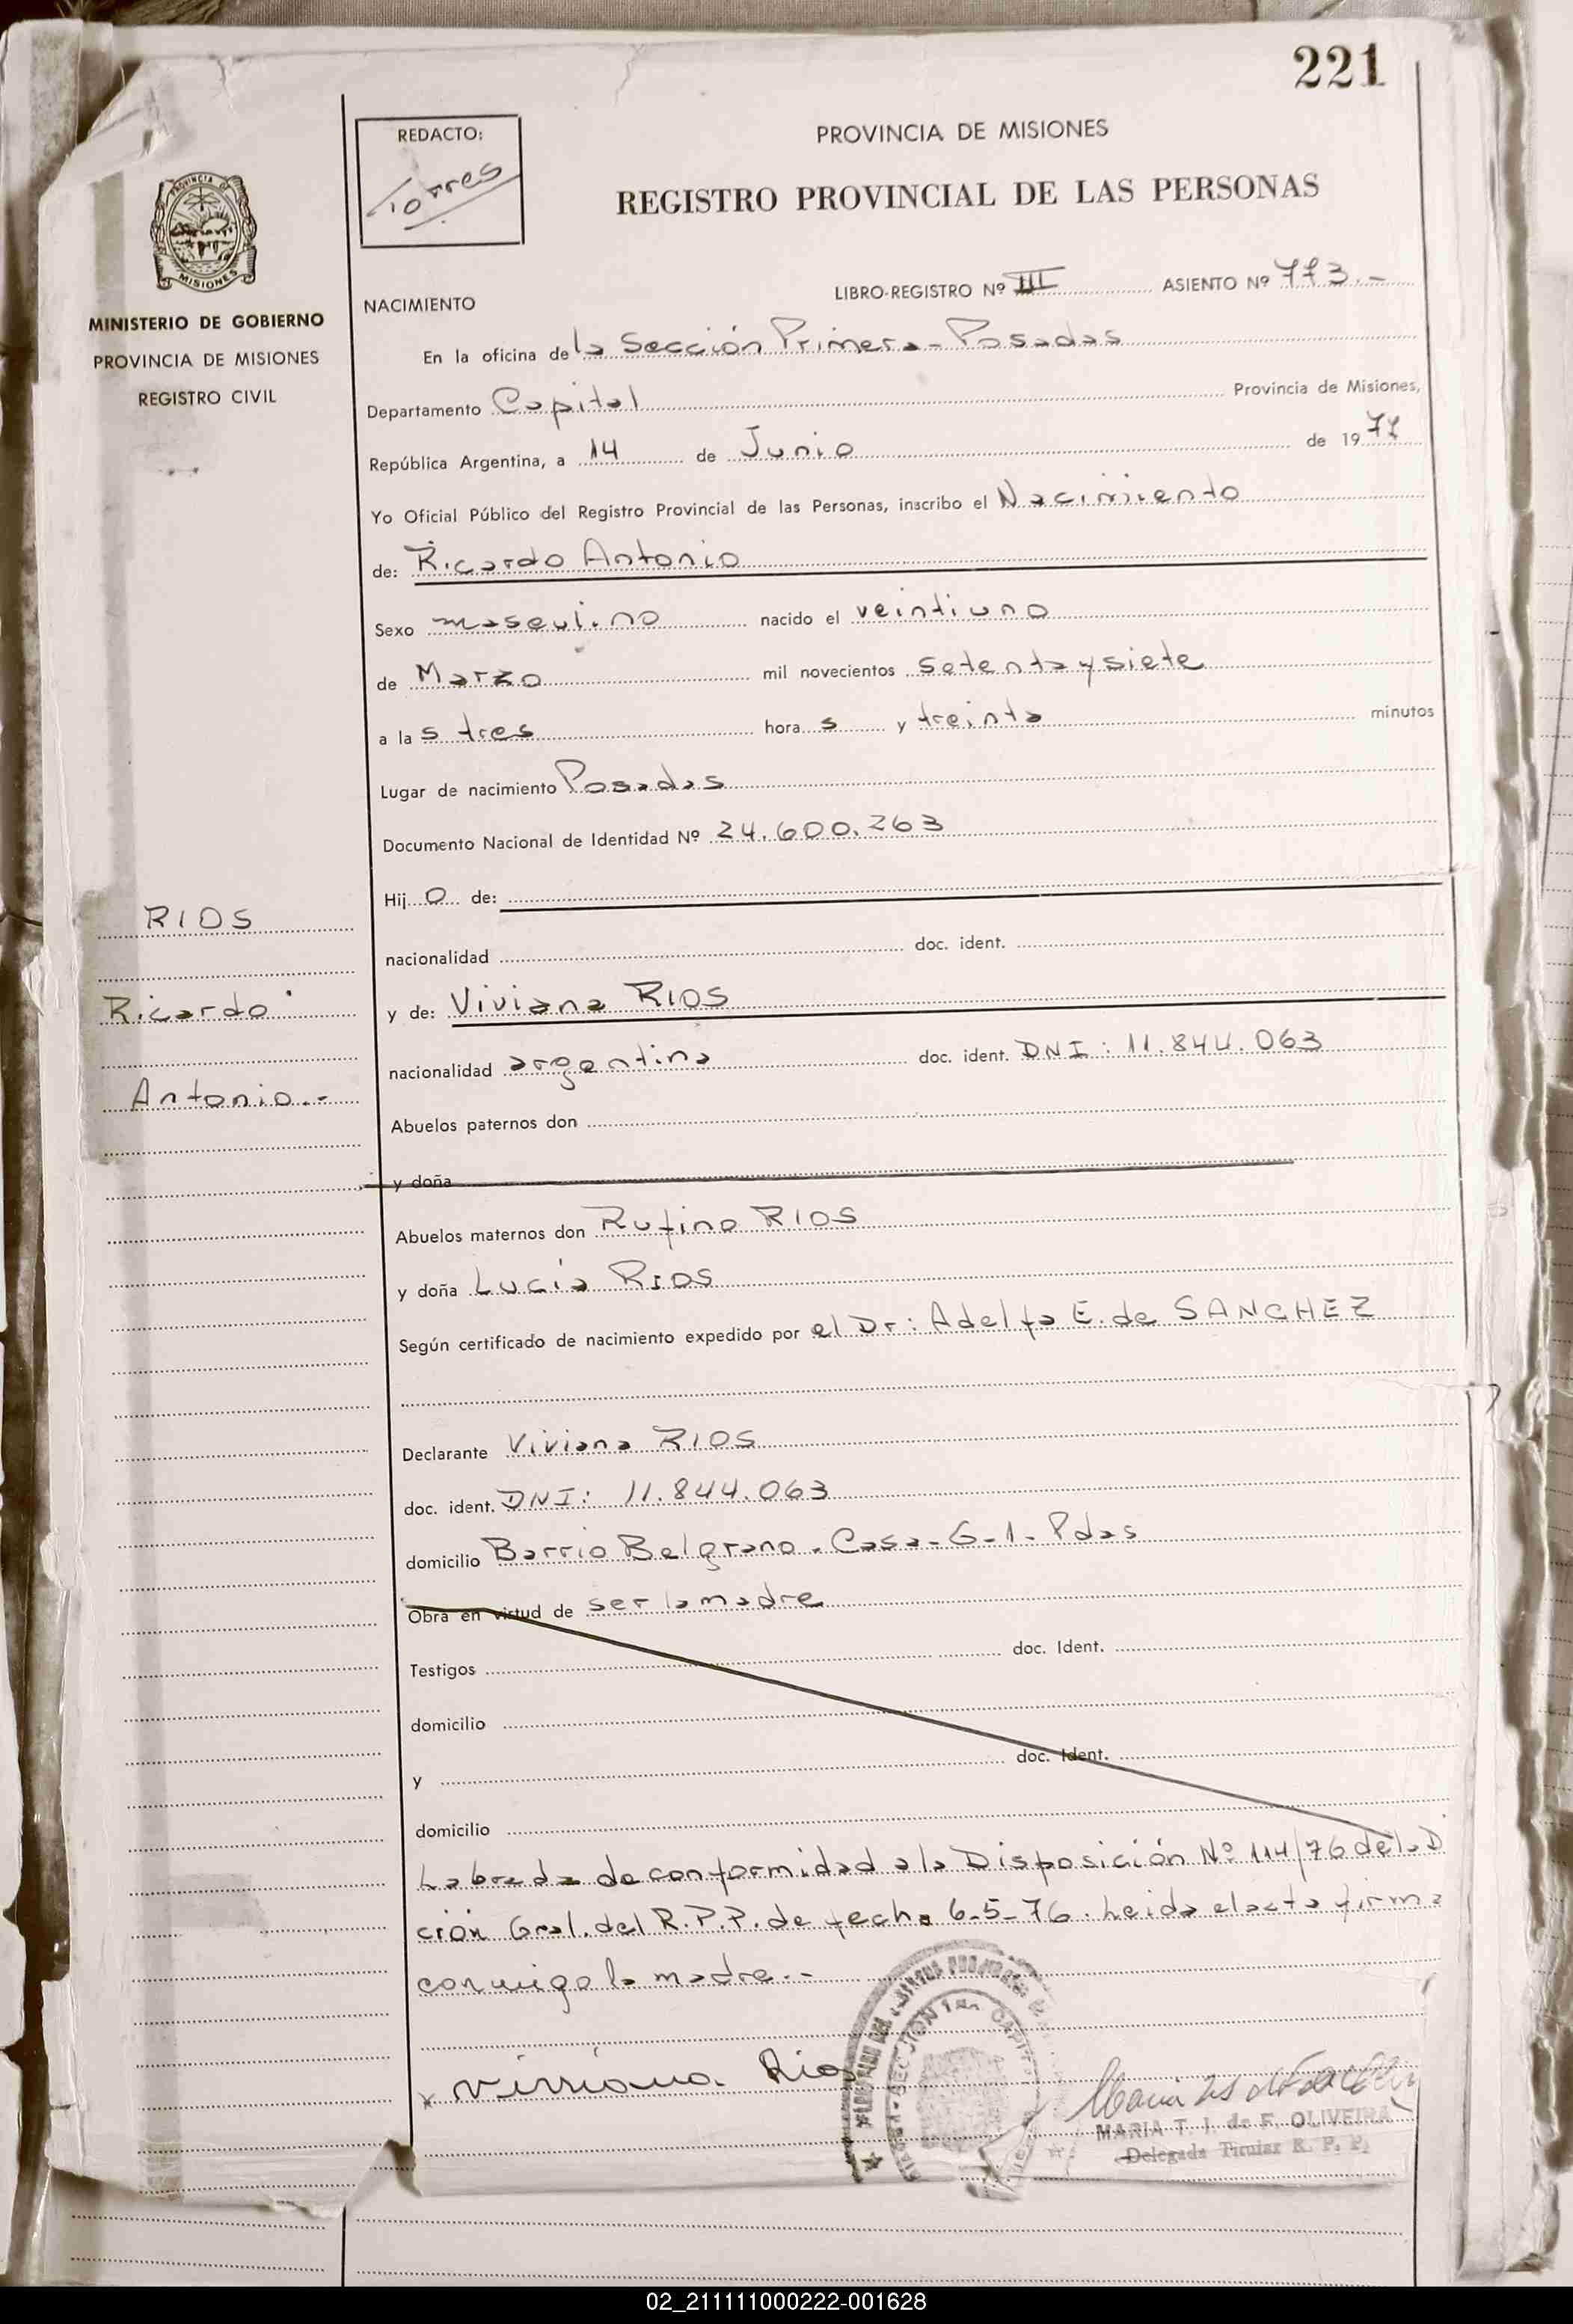 221
REDACTO:
Torres
PROVINCIA DE MISIONES
REGISTRO PROVINCIAL DE LAS PERSONAS
PROVINCIA DE
MISIONES
MINISTERIO DE GOBIERNO
PROVINCIA DE MISIONES
REGISTRO CIVIL
NACIMIENTO
LIBRO-REGISTRO Nº III ASIENTO Nº 773.-
En la oficina de la Sección Primera - Posadas
Departamento Capital Provincia de Misiones,
República Argentina, a 14 de Junio de 1977
Yo Oficial Público del Registro Provincial de las Personas, inscribo el Nacimiento
de: Ricardo Antonio
Sexo masculino nacido el veintiuno
de Marzo mil novecientos setenta y siete
a la s tres hora s y treinta minutos
Lugar de nacimiento Posadas
Documento Nacional de Identidad Nº 24.600.263
Hij o de:
RIOS
nacionalidad doc. ident.
Ricardo
y de: Viviana RIOS
nacionalidad argentina doc. ident. DNI: 11.844.063
Antonio.-
Abuelos paternos don
y doña
Abuelos maternos don Rufino RIOS
y doña Lucía RIOS
Según certificado de nacimiento expedido por el Dr: Adelfa E. de SANCHEZ
Declarante Viviana RIOS
doc. ident. DNI: 11.844.063
domicilio Barrio Belgrano - Casa - G-1 - Pdas
Obra en virtud de ser la madre
Testigos doc. Ident.
domicilio
y doc. Ident.
domicilio
Labrada de conformidad a la Disposición Nº 114/76 de la D
ción Gral. del R.P.P. de fecha 6-5-76. Leida el acta firma
conmigo la madre.-
x Viviana Rios
SECCION 1ra. CAPITAL
MARIA T. I. de F. OLIVEIRA
Delegada Titular R. P. P.
02_211111000222-001628